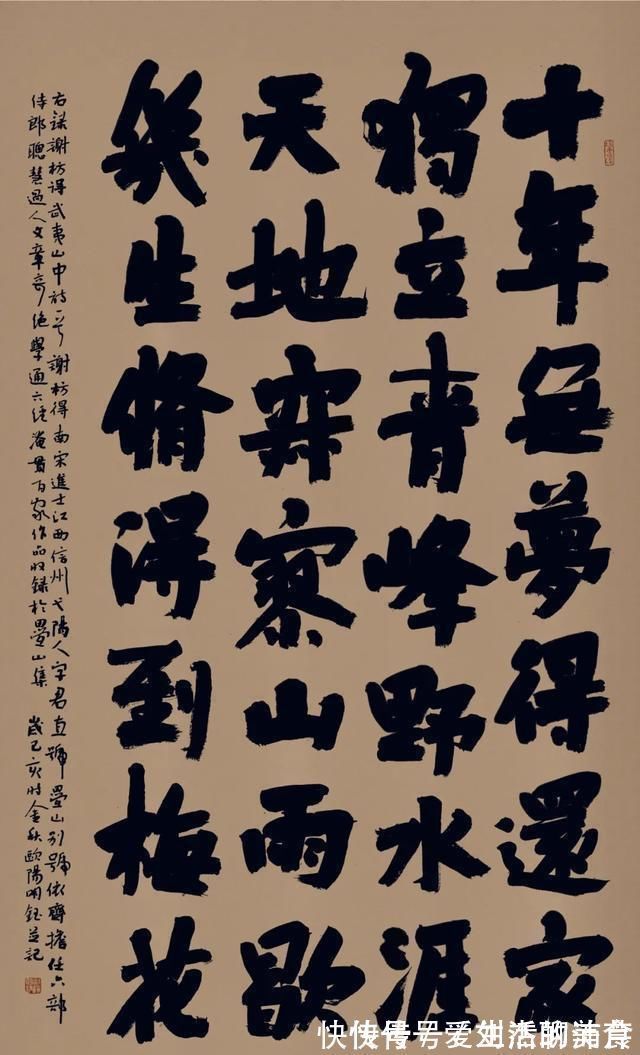 十年無夢得還家
獨立青峰野水涯
天地寂寥山雨歇
幾生脩得到梅花
右錄謝枋得武夷山中詩一首 謝枋得南宋進士江西信州弋陽人字君直號疊山別號依齋擔任六部
侍郎聰慧過人文章奇絕學通六經淹貫百家作品收錄於疊山集 歲己亥時金秋歐陽明鈺並記